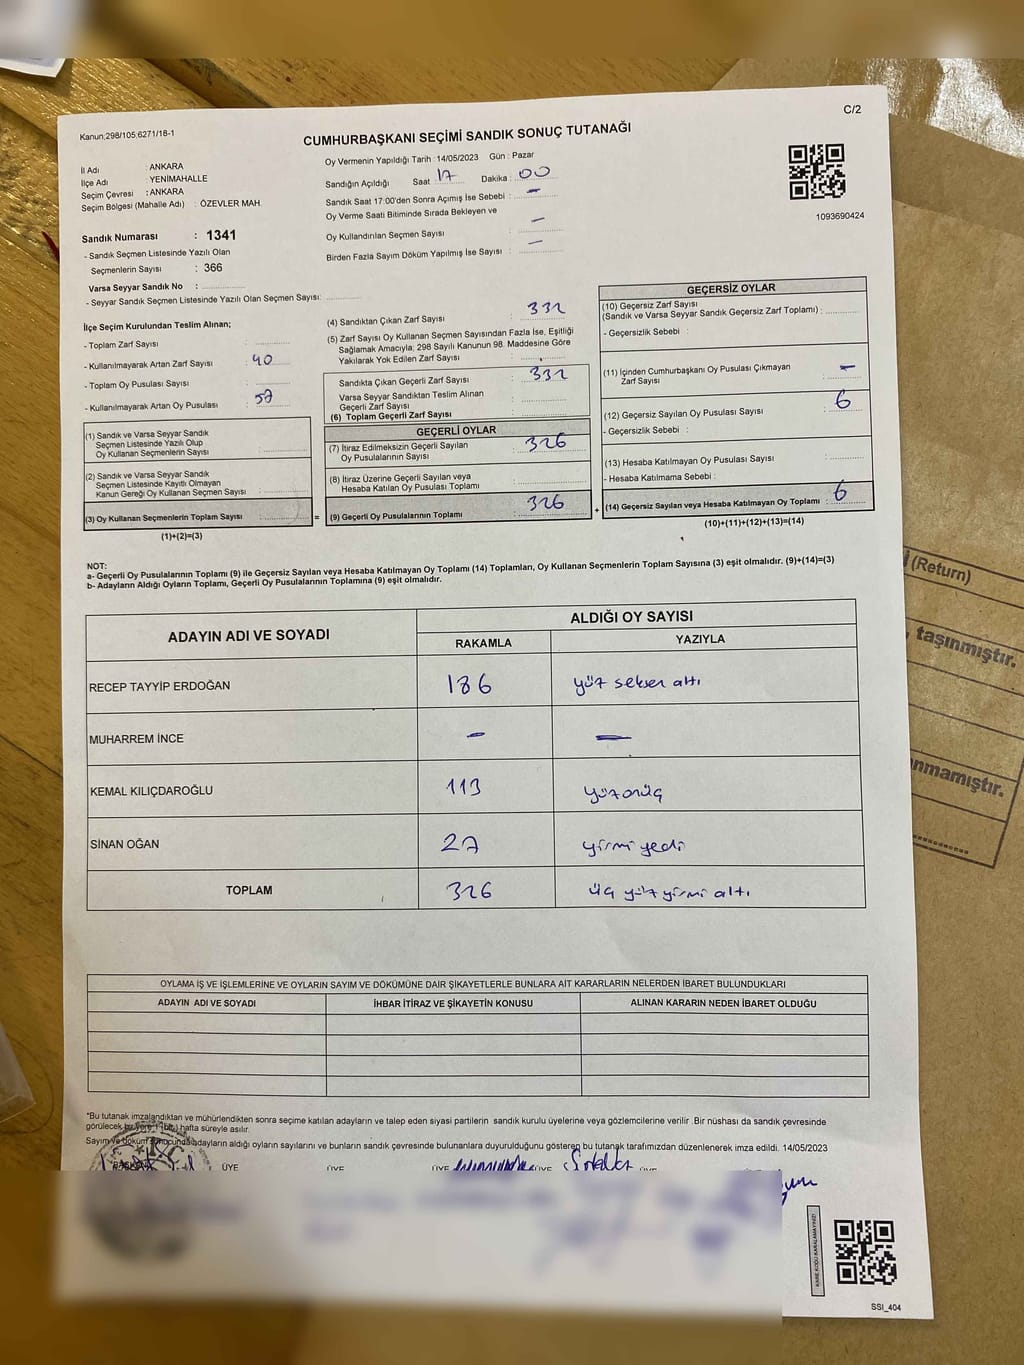 C/2
Kanun;298/105;6271/18-1
CUMHURBAŞKANI SEÇİMİ SANDIK SONUÇ TUTANAĞI
İl Adı : ANKARA
İlçe Adı : YENİMAHALLE
Seçim Çevresi : ANKARA
Seçim Bölgesi (Mahalle Adı) : ÖZEVLER MAH.
Oy Vermenin Yapıldığı Tarih : 14/05/2023 Gün : Pazar
Sandığın Açıldığı Saat 17 Dakika : 00
Sandık Saat 17:00'den Sonra Açımış İse Sebebi : -
Oy Verme Saati Bitiminde Sırada Bekleyen ve
Oy Kullandırılan Seçmen Sayısı : -
Birden Fazla Sayım Döküm Yapılmış İse Sayısı : -
1093690424
Sandık Numarası : 1341
- Sandık Seçmen Listesinde Yazılı Olan
Seçmenlerin Sayısı : 366
Varsa Seyyar Sandık No :
- Seyyar Sandık Seçmen Listesinde Yazılı Olan Seçmen Sayısı:
İlçe Seçim Kurulundan Teslim Alınan;
- Toplam Zarf Sayısı :
- Kullanılmayarak Artan Zarf Sayısı : 40
- Toplam Oy Pusulası Sayısı :
- Kullanılmayarak Artan Oy Pusulası : 57
(1) Sandık ve Varsa Seyyar Sandık
Seçmen Listesinde Yazılı Olup
Oy Kullanan Seçmenlerin Sayısı :
(2) Sandık ve Varsa Seyyar Sandık
Seçmen Listesinde Kayıtlı Olmayan
Kanun Gereği Oy Kullanan Seçmen Sayısı :
(3) Oy Kullanan Seçmenlerin Toplam Sayısı :
(1)+(2)=(3)
=
(4) Sandıktan Çıkan Zarf Sayısı : 332
(5) Zarf Sayısı Oy Kullanan Seçmen Sayısından Fazla İse, Eşitliği
Sağlamak Amacıyla; 298 Sayılı Kanunun 98. Maddesine Göre
Yakılarak Yok Edilen Zarf Sayısı :
Sandıkta Çıkan Geçerli Zarf Sayısı : 332
Varsa Seyyar Sandıktan Teslim Alınan
Geçerli Zarf Sayısı :
(6) Toplam Geçerli Zarf Sayısı :
GEÇERLİ OYLAR
(7) İtiraz Edilmeksizin Geçerli Sayılan
Oy Pusulalarının Sayısı : 326
(8) İtiraz Üzerine Geçerli Sayılan veya
Hesaba Katılan Oy Pusulası Toplamı :
(9) Geçerli Oy Pusulalarının Toplamı : 326
+
GEÇERSİZ OYLAR
(10) Geçersiz Zarf Sayısı
(Sandık ve Varsa Seyyar Sandık Geçersiz Zarf Toplamı) :
- Geçersizlik Sebebi :
(11) İçinden Cumhurbaşkanı Oy Pusulası Çıkmayan
Zarf Sayısı : -
(12) Geçersiz Sayılan Oy Pusulası Sayısı : 6
- Geçersizlik Sebebi :
(13) Hesaba Katılmayan Oy Pusulası Sayısı :
- Hesaba Katılmama Sebebi :
(14) Geçersiz Sayılan veya Hesaba Katılmayan Oy Toplamı : 6
(10)+(11)+(12)+(13)=(14)
NOT:
a- Geçerli Oy Pusulalarının Toplamı (9) ile Geçersiz Sayılan veya Hesaba Katılmayan Oy Toplamı (14) Toplamları, Oy Kullanan Seçmenlerin Toplam Sayısına (3) eşit olmalıdır. (9)+(14)=(3)
b- Adayların Aldığı Oyların Toplamı, Geçerli Oy Pusulalarının Toplamına (9) eşit olmalıdır.
ADAYIN ADI VE SOYADI ALDIĞI OY SAYISI
RAKAMLA YAZIYLA
RECEP TAYYİP ERDOĞAN 186 yüz seksen altı
MUHARREM İNCE - -
KEMAL KILIÇDAROĞLU 113 yüzonüç
SİNAN OĞAN 27 yirmi yedi
TOPLAM 326 üç yüz yirmi altı
OYLAMA İŞ VE İŞLEMLERİNE VE OYLARIN SAYIM VE DÖKÜMÜNE DAİR ŞİKAYETLERLE BUNLARA AİT KARARLARIN NELERDEN İBARET BULUNDUKLARI
ADAYIN ADI VE SOYADI İHBAR İTİRAZ VE ŞİKAYETİN KONUSU ALINAN KARARIN NEDEN İBARET OLDUĞU
*Bu tutanak imzalandıktan ve mühürlendikten sonra seçime katılan adayların ve talep eden siyasi partilerin sandık kurulu üyelerine veya gözlemcilerine verilir. Bir nüshası da sandık çevresinde
görülecek bir yere 1 (bir) hafta süreyle asılır.
Sayım ve döküm sonucunda adayların aldığı oyların sayılarını ve bunların sandık çevresinde bulunanlara duyurulduğunu gösteren bu tutanak tarafımızdan düzenlenerek imza edildi. 14/05/2023
BAŞKAN ÜYE ÜYE ÜYE ÜYE ÜYE
SSI_404
(Return)
taşınmıştır.
nmamıştır.